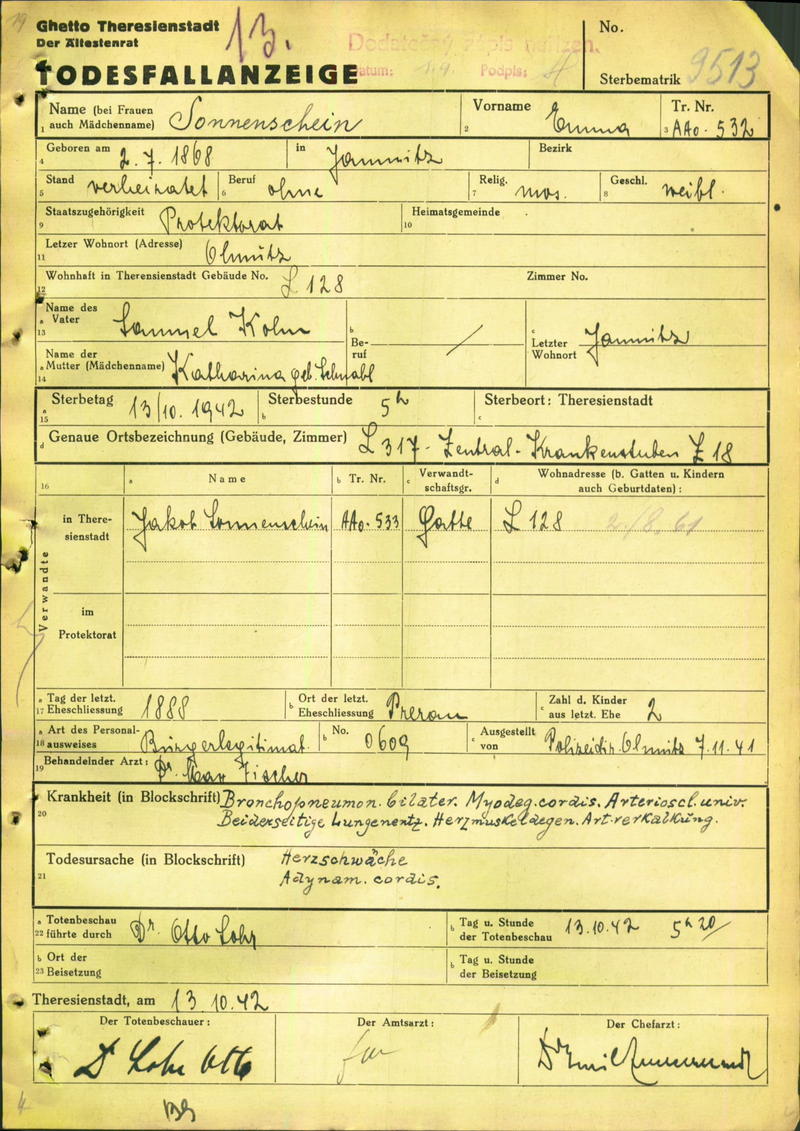 Ghetto Theresienstadt
Der Ältestenrat
13.
Dodatečný zápis nařízen.
Datum: Podpis:
No.
TODESFALLANZEIGE
Sterbematrik 9513
Name (bei Frauen Sonnenschein Vorname Emma Tr. Nr.
1 auch Mädchenname) 2 3 AAo - 532
Geboren am 2. 7. 1868 in Jamnitz Bezirk
4
Stand verheiratet Beruf ohne Relig. mos. Geschl. weibl.
5 6 7 8
Staatszugehörigkeit Protektorat Heimatsgemeinde
9 10
Letzer Wohnort (Adresse) Olmütz
11
Wohnhaft in Theresienstadt Gebäude No. L 128 Zimmer No.
12
Name des
a Vater Samuel Kohn b Be-ruf / c Letzter Wohnort Jamnitz
13
Name der
a Mutter (Mädchenname) Katharina geb. Schnabl
14
Sterbetag 13/10. 1942 Sterbestunde 5 h Sterbeort: Theresienstadt
a 15 b c
d Genaue Ortsbezeichnung (Gebäude, Zimmer) L 317 - Zentral - Krankenstuben Z 18
16 a Name b Tr. Nr. c Verwandt-schaftsgr. d Wohnadresse (b. Gatten u. Kindern auch Geburtdaten):
Verwandte
in There-sienstadt Jakob Sonnenschein AAo - 533 Gatte L 128 2./8. 61
im
Protektorat
a Tag der letzt. b Ort der letzt. Zahl d. Kinder
17 Eheschliessung 1888 Eheschliessung Prerau c aus letzt. Ehe 2
a Art des Personal- b No. Ausgestellt
18 ausweises Bürgerlegitimat. 0609 c von Polizeidir. Olmütz 7.11.41
Behandelnder Arzt: Dr. Max Fischer
19
Krankheit (in Blockschrift) Bronchopneumon. bilater. Myodeg. cordis. Arterioscl. univ.
20 Beiderseitige Lungenentz. Herzmuskeldegen. Art.rerkalkung.
Todesursache (in Blockschrift) Herzschwäche
21 Adynam. cordis.
a Totenbeschau Dr. Otto Lohr b Tag u. Stunde 13.10.42 5 h 20/
22 führte durch der Totenbeschau
b Ort der b Tag u. Stunde
23 Beisetzung der Beisetzung
Theresienstadt, am 13 10. 42
Der Totenbeschauer: Der Amtsarzt: Der Chefarzt:
Dr Lohr Otto